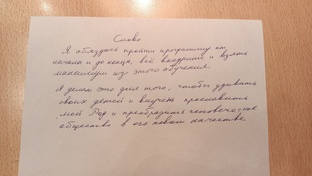 Слово
Я обязуюсь пройти программу от
начала и до конца, всё внедрить и взять
максимум из этого обучения.
Я делаю это для того, чтобы удивить
своих детей и внучек прославить
мой Род и преобразить человеческое
общество в его новом качестве.